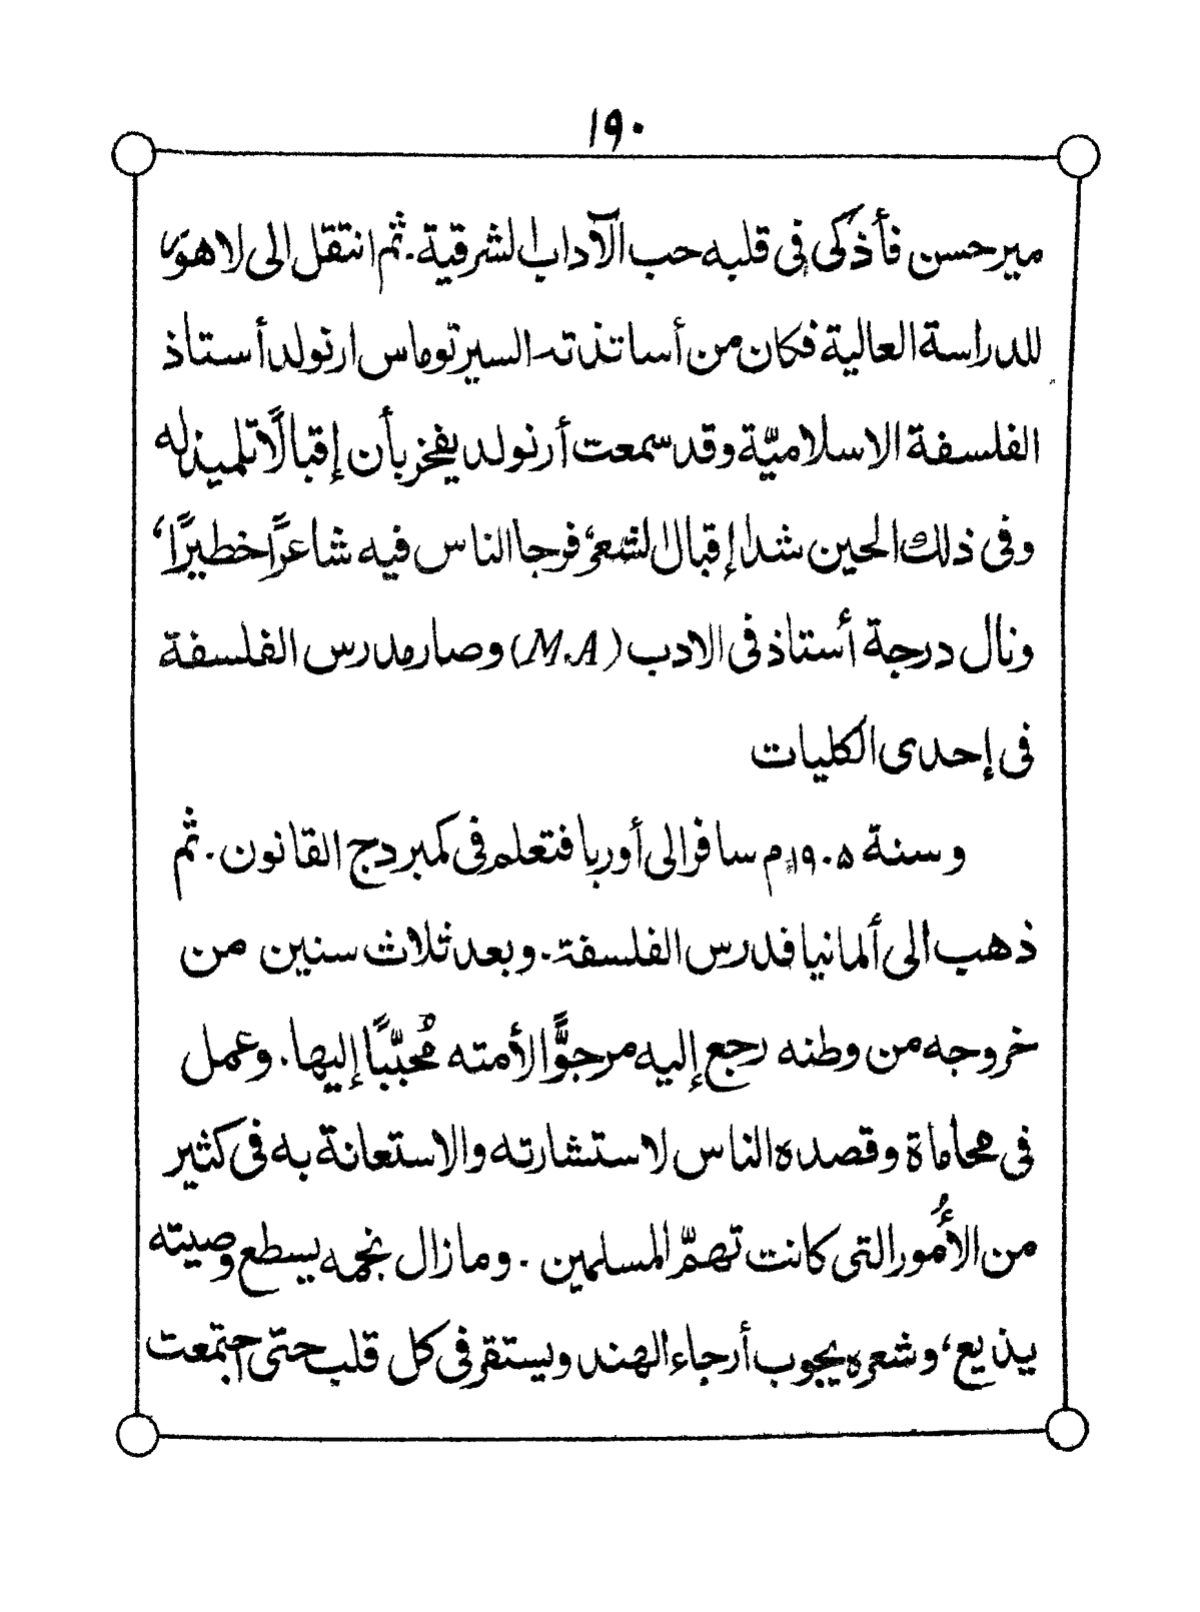 ١٩٠
مير حسن فأذكى فى قلبه حب الآداب الشرقية. ثم انتقل الى لاهور
للدراسة العالية فكان من أساتذته السير توماس ارنولد أستاذ
الفلسفة الاسلاميّة وقد سمعت أرنولد يفخر بأن إقبالًا تلميذ له
وفى ذلك الحين شدا إقبال الشعر، فرجا الناس فيه شاعرًا خطيرًا،
ونال درجة أستاذ فى الادب (M.A) وصار مدرس الفلسفة
فى إحدى الكليات
وسنة ١٩٠٥م سافر الى أوربا فتعلم فى كمبردج القانون. ثم
ذهب الى ألمانيا فدرس الفلسفة. وبعد ثلاث سنين من
خروجه من وطنه رجع إليه مرجوًّا لأمته مُحبّبًا إليها. وعمل
فى محاماة وقصده الناس لاستشارته والاستعانة به فى كثير
من الأُمور التى كانت تهمّ المسلمين. ومازال نجمه يسطع وصيته
يذيع، وشعره يجوب أرجاء الهند ويستقر فى كل قلب حتى اجتمعت